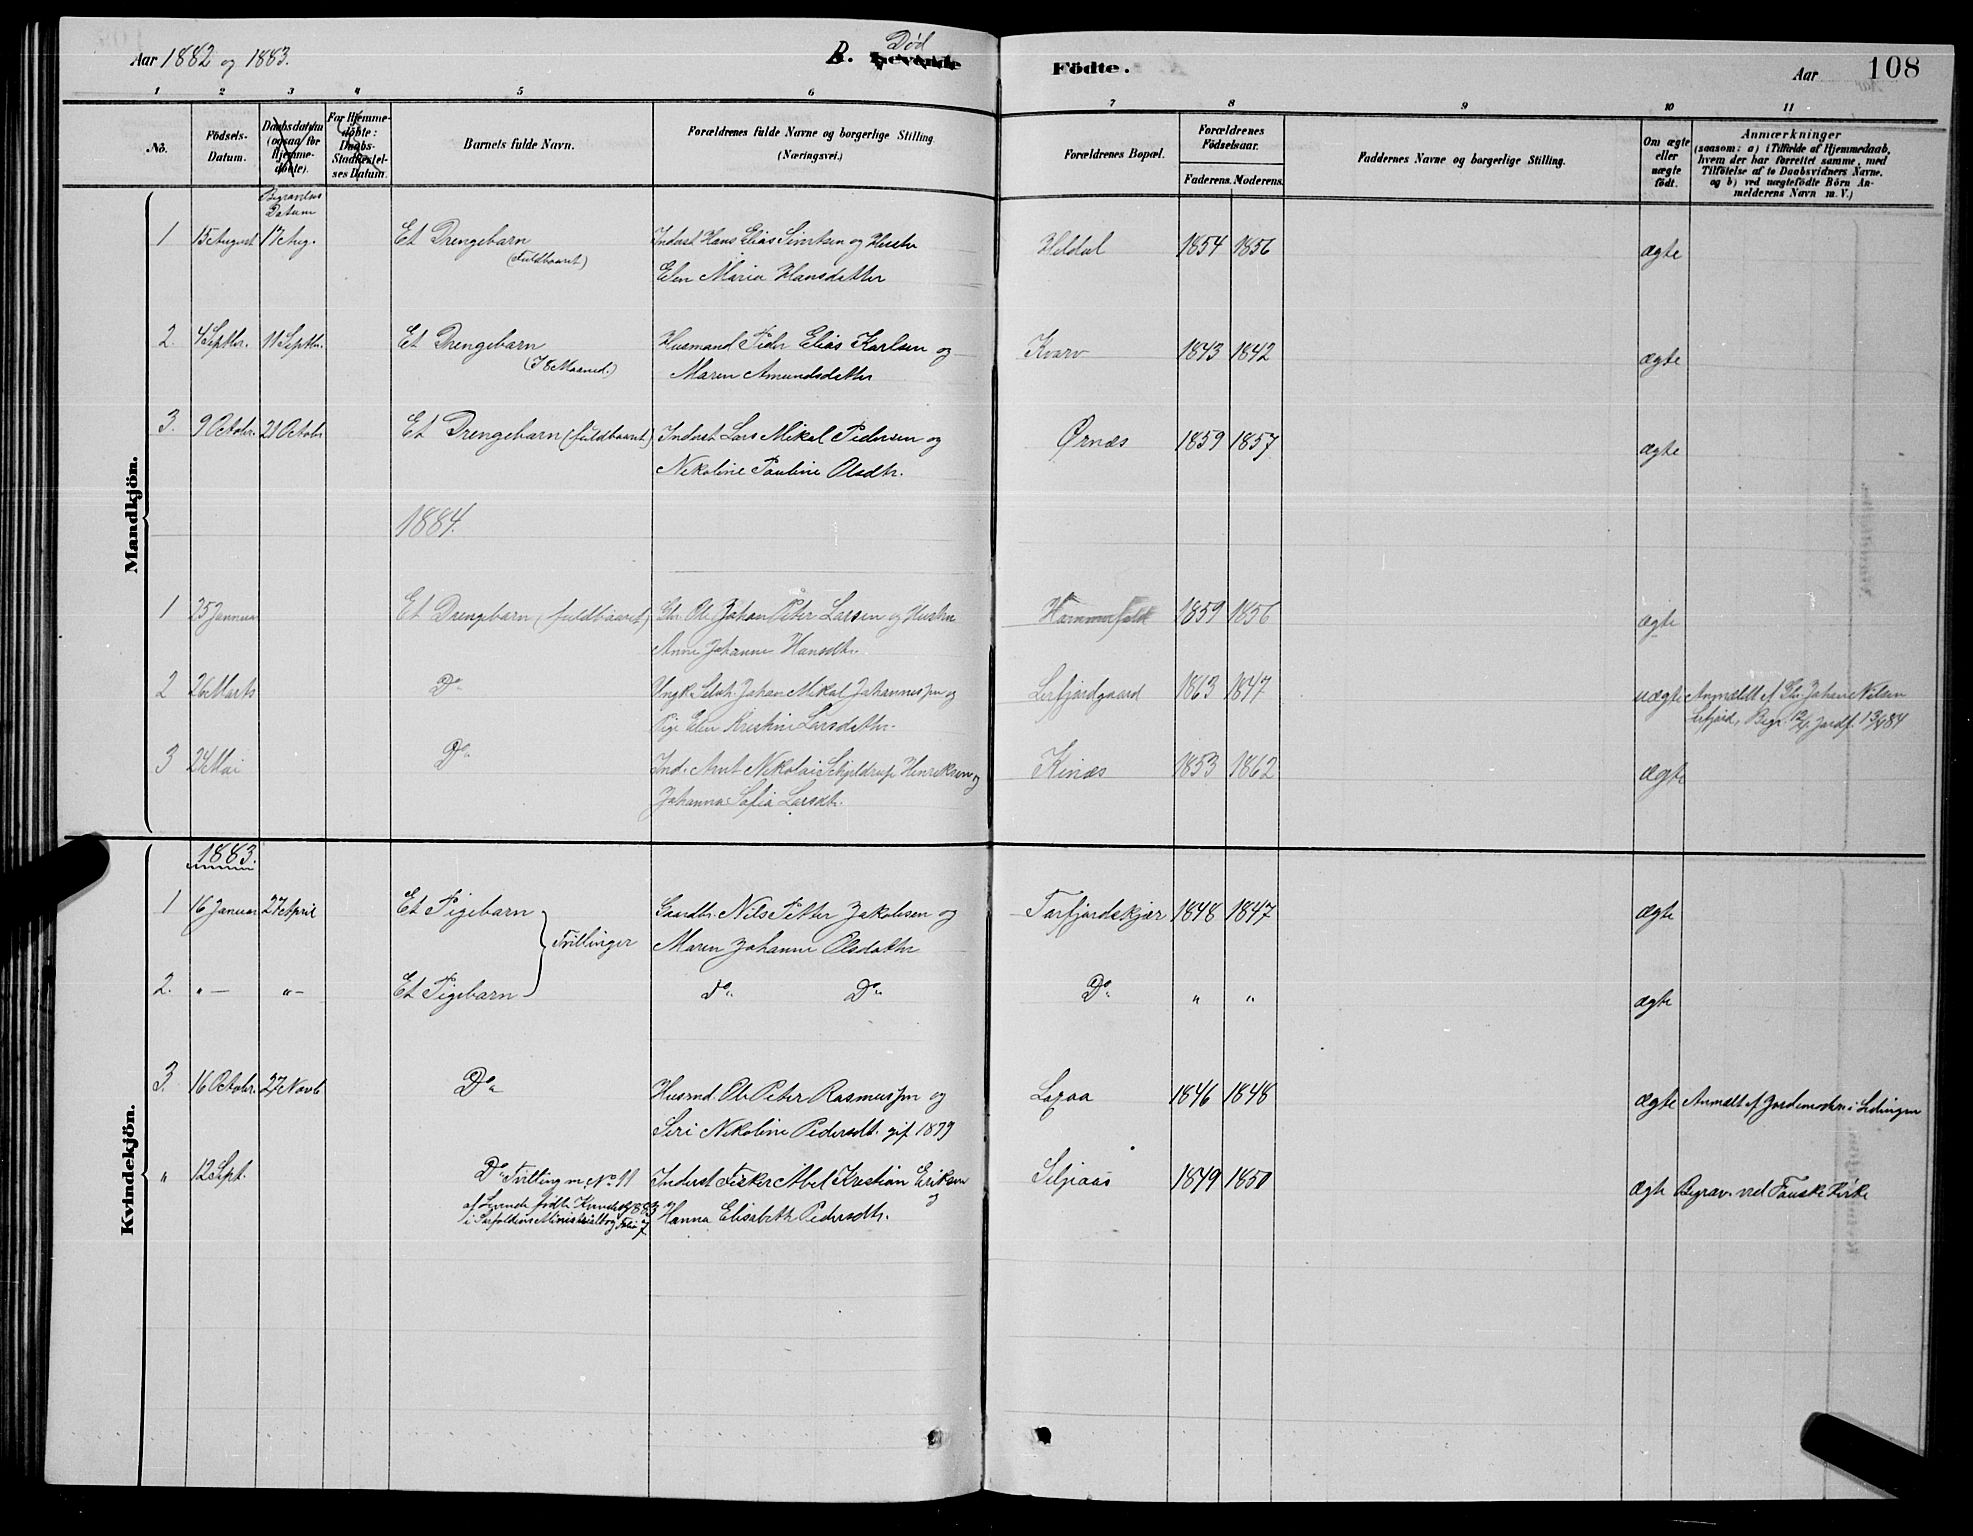 Aar 1882 og 1883.
B. Død
Levende Födte.
Aar 108
1 2 3 4 5 6 7 8 9 10 11
No.
Födsels-
Datum.
Daabsdatum
(ogsaa for
Hjemme-
döbte).
For Hjemme-
döbte:
Daabs-
Stadfæstel-
ses Datum.
Barnets fulde Navn.
Forældrenes fulde Navne og borgerlige Stilling
(Næringsvei.)
Forældrenes Bopæl.
Forældrenes
Födselsaar.
Faderens. Moderens.
Faddernes Navne og borgerlige Stilling.
Om ægte
eller
uægte
födt.
Anmærkninger
(saasom: a) i Tilfælde af Hjemmedaab,
hvem der har forrettet samme, med
Tilföielse af to Daabsvidners Navne.
og b) ved uægtefödte Börn An-
melderens Navn m. V.)
Begravelses
Datum
Mandkjön.
1 15 August 17 Aug. Et Drengebarn Inderst Hans Elias Simksen og Hustru Heldal 1854 1856 ægte
(fuldbaaret) Elen Maria Hansdatter
2. 4 Septbr. 11 Septbr. Et Drengebarn Husmand Peder Elias Karlsen og Kvarv 1843 1842 ægte
(I 8 Maaned.) Maren Amundsdatter
3. 9 Octobr. 21 Octobr Et Drengebarn (fuldbaaret) Inderst Lars Mikal Pedersen og Ørnæs 1859 1857 ægte
Nikoline Pauline Olsdtr.
1884.
1 25 Januar Et Drengebarn (fuldbaaret) Gbr. Ole Johan Peter Larsen og Hustru Hammerfald 1859 1856 ægte
Anne Johanne Hansdtr.
2 26 Marts Do Ungk. Selvh. Johan Mikal Johannessen og Leifjordgaard 1863 1847 uægte Anmældt af Gbr. Johan Nilsen
Pige Elen Kristine Larsdattr. Leifjord, Begr. 12/4 Jordf. 13/4 84
3 24 Mai Do Ind. Arnt Nikolai Schjeldrup Henriksen og Kinæs 1853 1862 ægte
Johanna Sofia Larsdtr.
Kvindekjön.
1883.
1 16 Januar 27 April Et Pigebarn Gaardbr. Nils Petter Jakobsen og Tørfjordskjær 1848 1847 ægte
Tvillinger Maren Johanne Olsdatter
2. " — " — Et Pigebarn Do Do Do " " ægte
3. 16 Octobr. 27 Novb Do Husmd. Ole Peter Rasmussen og Laxaa 1846 1848 ægte Anmeldt af Jordemoderen i Lødingen
Siri Nikoline Pedersdt. gif 1879
" 12 Sept. Do Tvilling m. No 11 Inderst Fisker Abel Kristian Eriksen Siljeaas 1849 1850 ægte Begrav. ved Fauske Kirke
af Levende fødte Kvindekj 1883 og
i Sørfoldens Ministerialbog Folio 7 Hanna Elisabeth Pedersdtr.